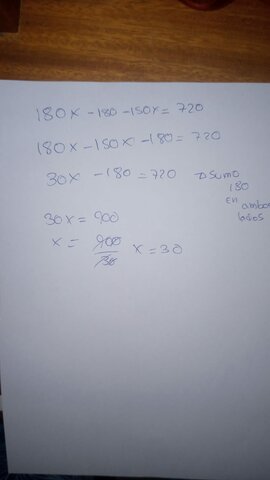 180x - 180 - 150x = 720
180x - 150x - 180 = 720
30x - 180 = 720 → sumo
180
en
ambos
lados
30x = 900
x = 900/30 x = 30